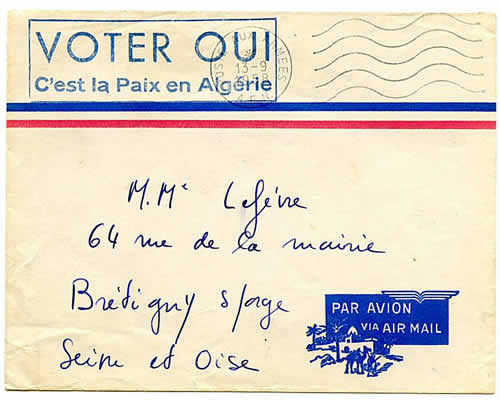 VOTER OUI
C'est la Paix en Algérie
POSTE AUX ARMEES
13-9
1958
A.F.N.
M. Me Lefèvre
64 rue de la mairie
Brétigny s/orge
Seine et Oise
PAR AVION
VIA AIR MAIL